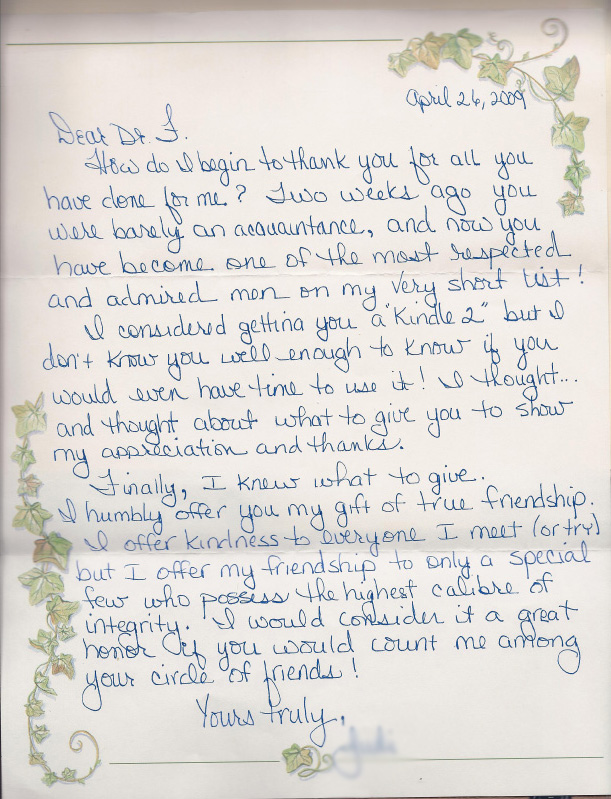 April 26, 2009
Dear Dr. F.
How do I begin to thank you for all you
have done for me? Two weeks ago you
were barely an acquaintance, and now you
have become one of the most respected
and admired men on my very short list!
I considered getting you a "Kindle 2" but I
don't know you well enough to know if you
would even have time to use it! I thought...
and thought about what to give you to show
my appreciation and thanks.
Finally, I knew what to give.
I humbly offer you my gift of true friendship.
I offer kindness to everyone I meet (or try)
but I offer my friendship to only a special
few who possess the highest calibre of
integrity. I would consider it a great
honor if you would count me among
your circle of friends!
Yours truly,